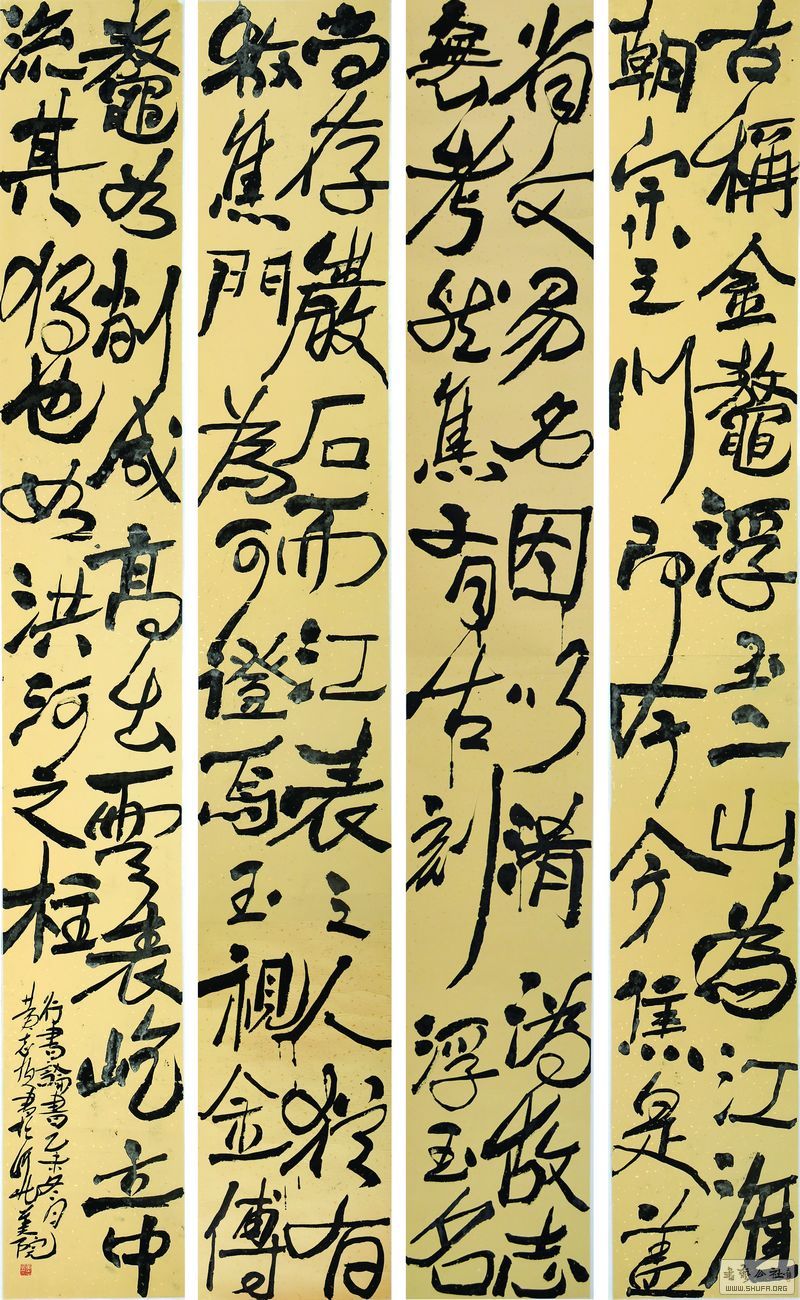 古稱金鼇浮玉二山為江淮
朝宗之門即今焦是蓋
省文易名因以淆譌故志
無考然焦有古刻浮玉名
尚存巖石而江表之人猶有
救焦門為可證焉玉視金傅
鼇若削成高出雲表屹立中
流其獨也如洪河之柱
行書論書乙未冬月
黃志 書於河北美院
書法公社
WWW.SHUFA.ORG